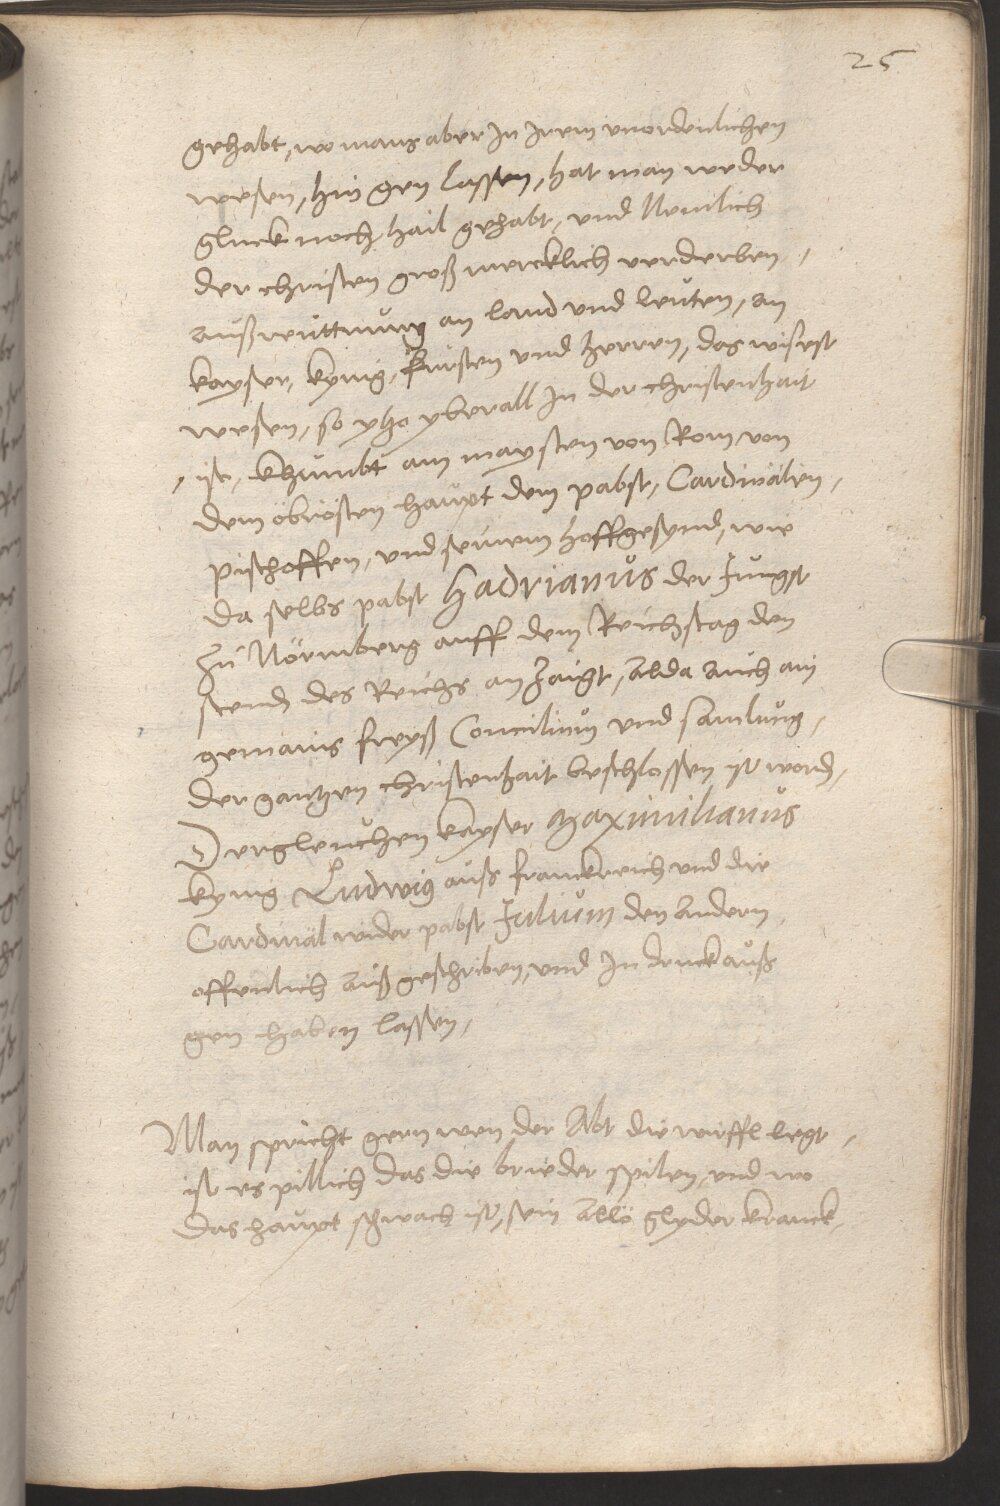 25
gehabt, wo mans aber In Irem vnordenlichen
wesen, hin gen lassen, hat man weder
gluck noch hail gehabt, vnd Nemlich
der christen groß mercklich verderben,
außreuttnung an land vnd leuten, an
kayser, kynig, fürsten vnd herren, das wisest
wesen, so yho yberall In der christenhait
ist, khumbt am maysten von Rom von
dem öbristen haupt dem pabst, Cardinälen,
pischoffen, vnd seinem hoffgesynd, wie
da selbs pabst Hadrianus der Jungst
zu Nörmberg auff dem Reichstag den
stend des Reichs an zaigt, alda auch ain
gemains freyß Concilium vnd samlung,
der gantzen christenhait beschlossen ist word,
Dergleichen kayser Maximilianus
kynig Ludwig auß franckreich vnd die
Cardinäl wider pabst Julium den andern
offenlich auß geschriben, vnd In druck auß
gen haben lassen,
Man spricht gern wen der Abt die wirffl legt,
ist es pillich das die brieder spilen, vnd wo
das haupt schwach ist, sein allö glyder kranck,